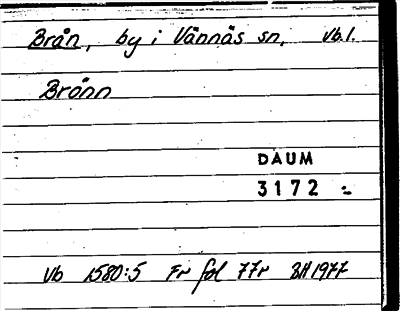 Brån, by i Vännäs sn, Vb.l.
Brånn
DAUM
3172
Vb 1580:5 Fr fol 77r BH 1977